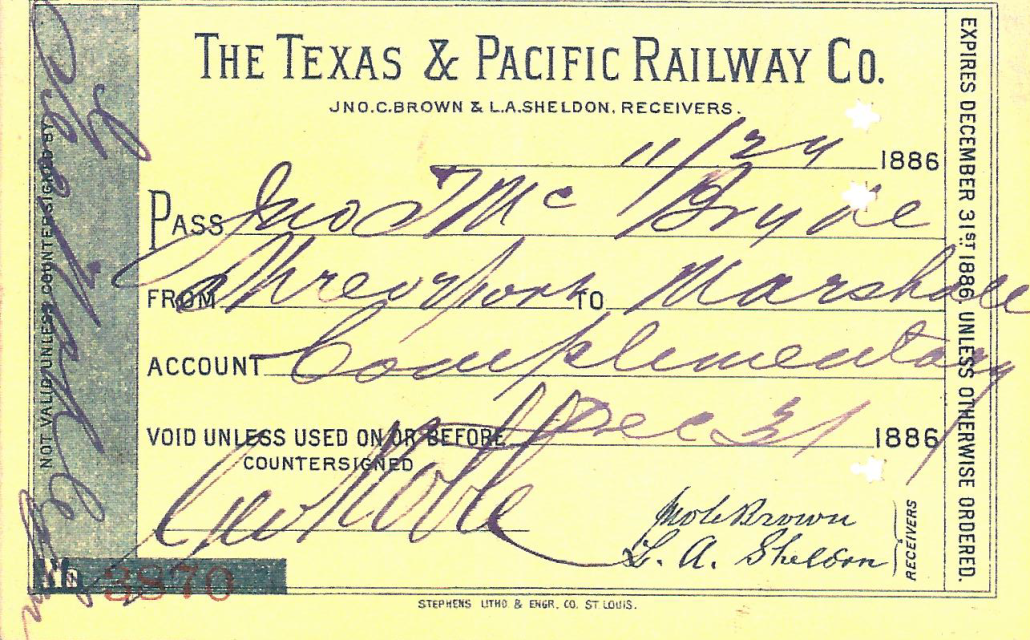 THE TEXAS & PACIFIC RAILWAY CO.
JNO.C.BROWN & L.A.SHELDON, RECEIVERS.
11/24 1886
PASS Jno T Mc Bryde
FROM Shreveport TO Marshall
ACCOUNT Complementary
VOID UNLESS USED ON OR BEFORE Dec 31 1886
COUNTERSIGNED
Geo Noble
Jno C Brown
L. A. Sheldon
RECEIVERS
No 3870
STEPHENS LITHO & ENGR. CO. ST LOUIS.
NOT VALID UNLESS COUNTERSIGNED BY
EXPIRES DECEMBER 31ST 1886 UNLESS OTHERWISE ORDERED.